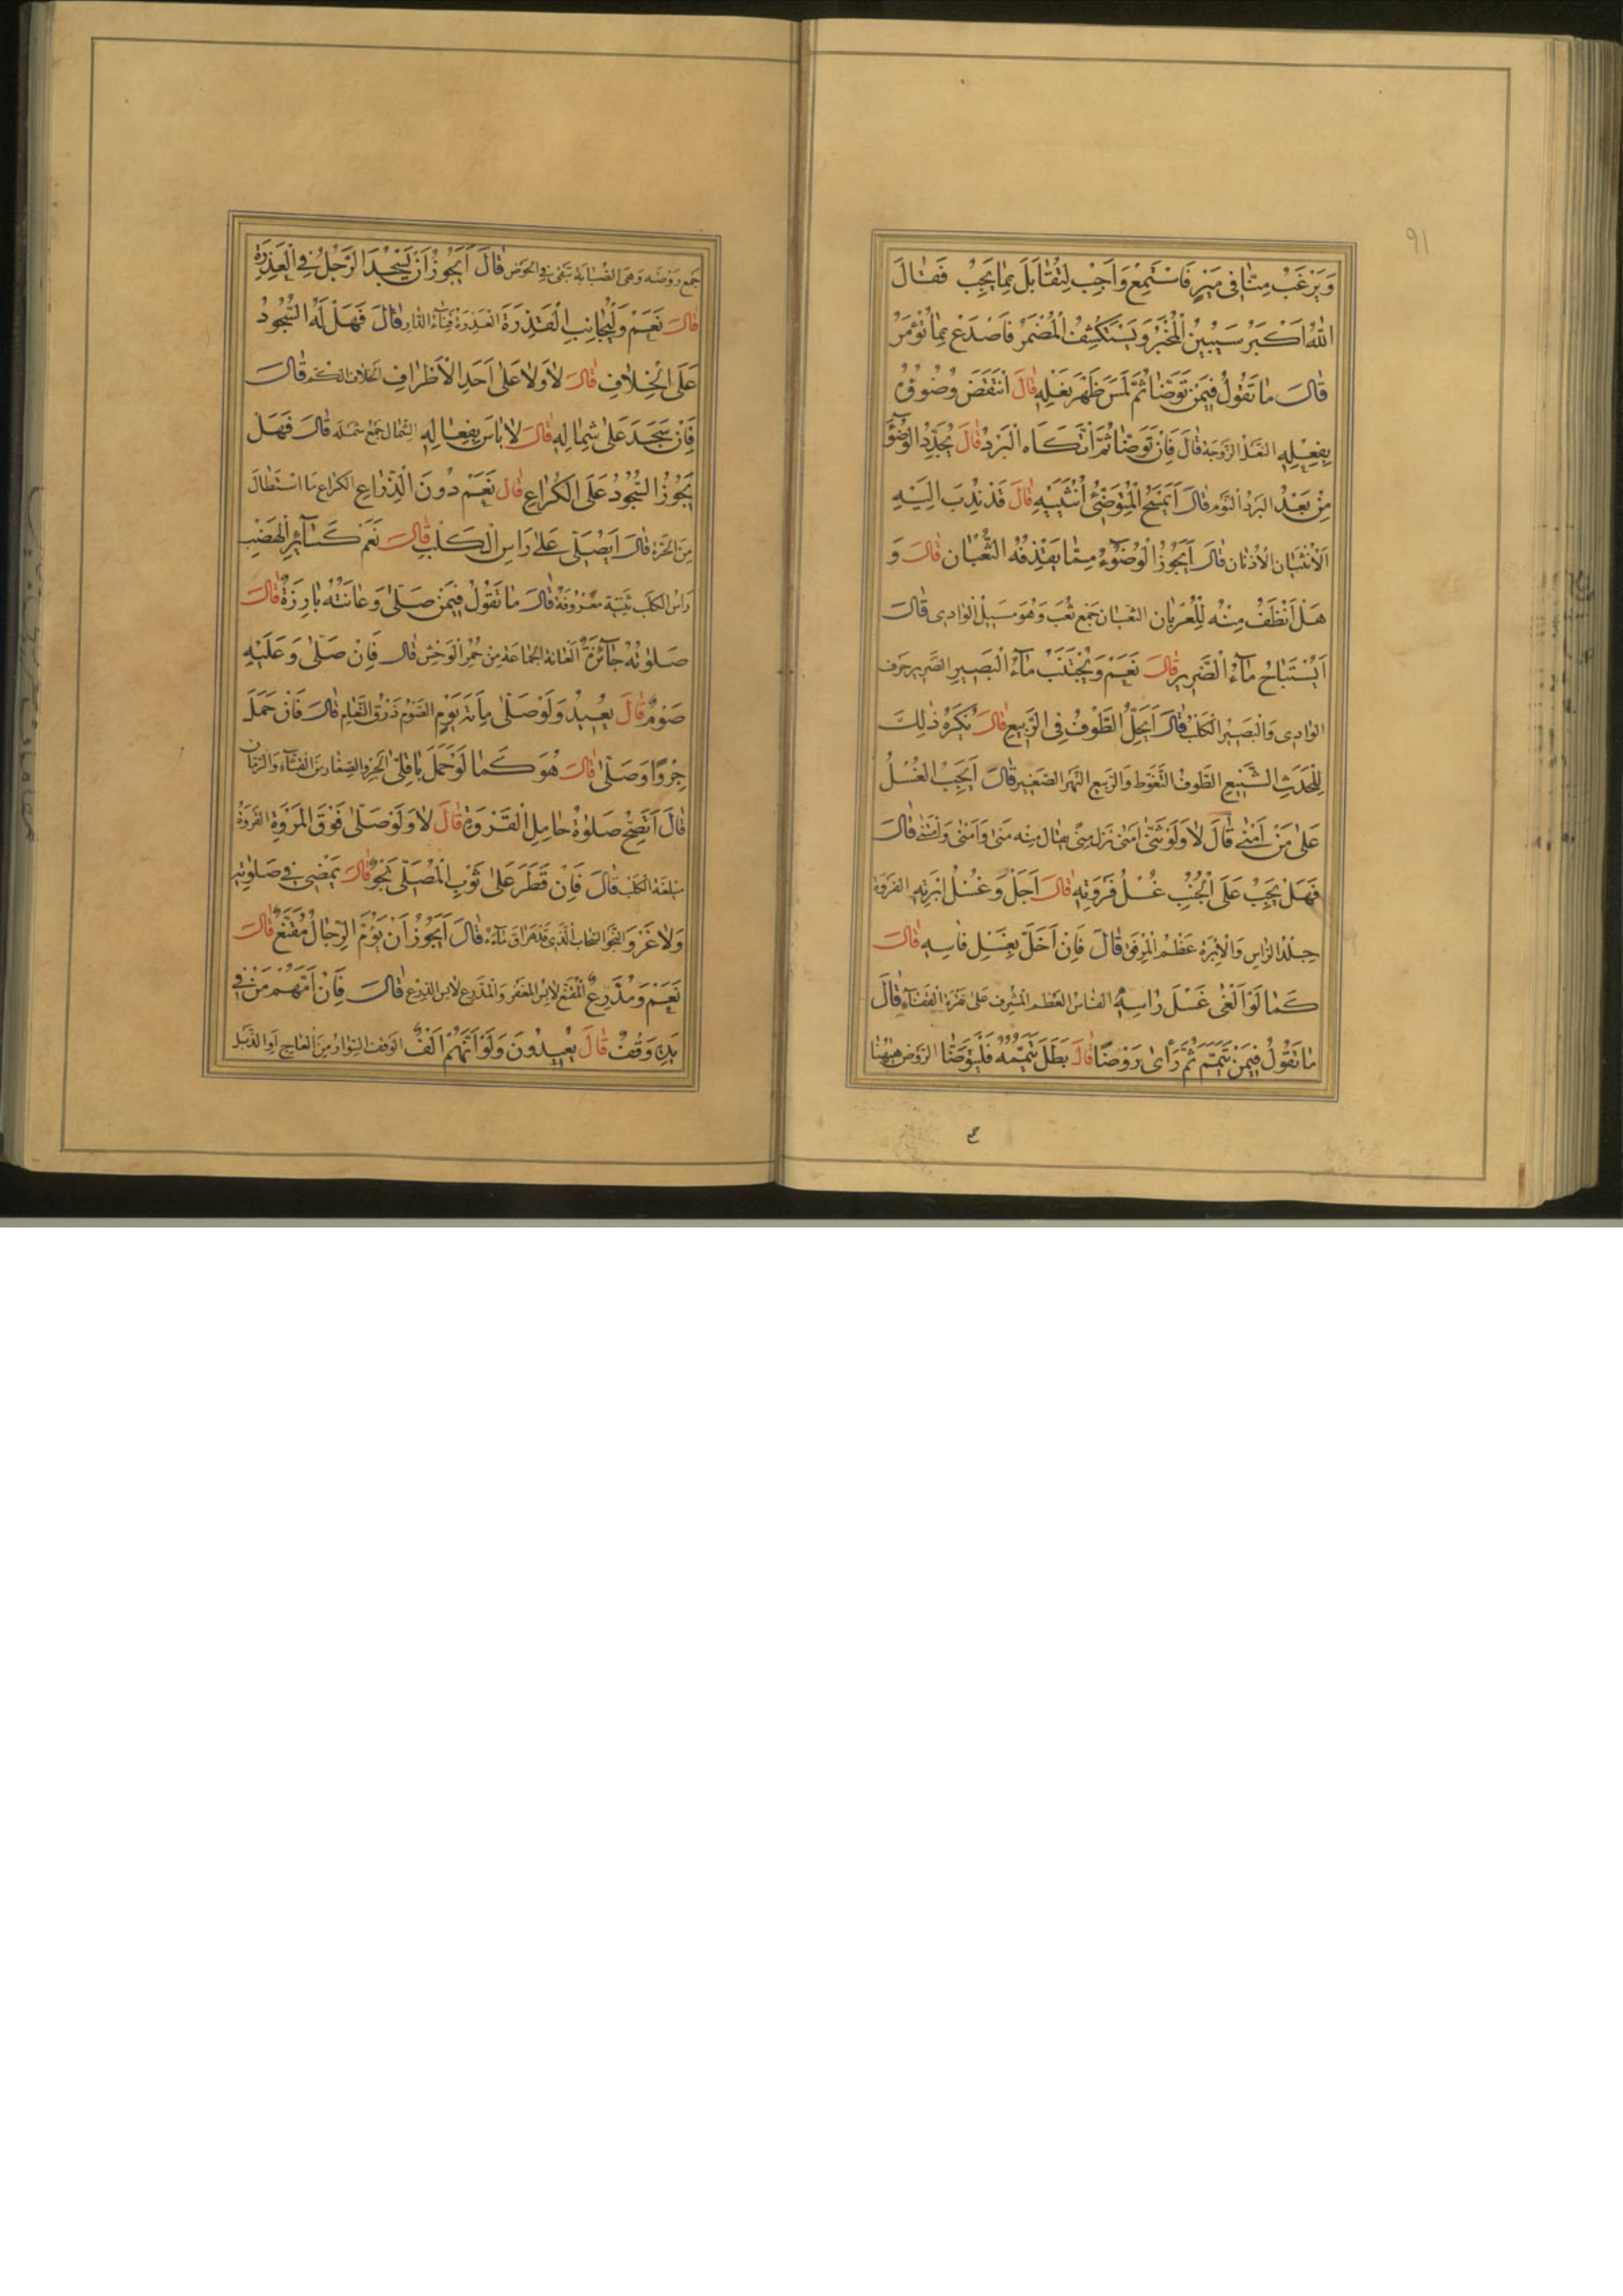 ٩١
وَيَرْغَبُ مِنَّا فِى مَيْرٍ فَاسْتَمِعْ وَاَجِبْ لِتُقَابَلَ بِمَا يَجِبُ فَقَالَ
اَللّٰهُ اَكْبَرُ سَيَبِيْنُ الْمَخْبَرُ وَيَنْكَشِفُ الْمُضْمَرُ فَاصْدَعْ بِمَا تُؤْمَرُ
قَالَ مَا تَقُولُ فِيمَنْ تَوَضَّأَ ثُمَّ لَمَسَ ظَهْرَ نَعْلِهِ قَالَ اَنْتَقَضَ وُضُوؤُهُ
بِفِعْلِهِ النعل الزوجة قَالَ فَاِنْ تَوَضَّأَ ثُمَّ اَتْكَاَهُ الْبَرْدُ قَالَ يُجَدِّدُ الْوُضُوءَ
مِنْ بَعْدُ البرد النوم قَالَ اَيَمْسَحُ الْمُتَوَضِّئُ اُنْثَيَيْهِ قَالَ قَدْ نُدِبَ اِلَيْهِ
اَلْاُنْثَيَانِ الاذنان قَالَ اَيَجُوزُ الْوُضُوءُ مِمَّا يَقْذِفُهُ الثُّعْبَانُ قَالَ وَ
هَلْ اَنْظَفُ مِنْهُ لِلْعُرْبَانِ الثعبان جمع ثعب وهو مسيل الوادى قَالَ
اَيُسْتَبَاحُ مَاءُ الضَّرِيرِ قَالَ نَعَمْ وَيُجْتَنَبُ مَاءُ الْبَصِيرِ الضرير حرف
الوادى والبصير الكلب قَالَ اَيَحِلُّ التَّطَوُّفُ فِى الرَّبِيعِ قَالَ يُكْرَهُ ذٰلِكَ
لِلْحَدَثِ الشَّنِيعِ التطوف التغوط والربيع النهر الصغير قَالَ اَيَجِبُ الْغُسْلُ
عَلٰى مَنْ اَمْنٰى قَالَ لَا وَلَوْ ثَنّٰى امنى نزل منى يقال منه منى وامنى وامتنى قَالَ
فَهَلْ يَجِبُ عَلَى الْجُنُبِ غُسْلُ فَرْوَتِهِ قَالَ اَجَلْ وَغُسْلُ اِبْرَتِهِ الفروة
جلدة الراس والابرة عظم المرفق قَالَ فَاِنْ اَخَلَّ بِغَسْلِ فَاْسِهِ قَالَ
كَمَا لَوْ اَلْغٰى غَسْلَ رَاْسِهِ الفاس العظم المشرف على نقرة القفاء قَالَ
مَا تَقُولُ فِيمَنْ تَيَمَّمَ ثُمَّ رَاٰى رَوْضًا قَالَ بَطَلَ تَيَمُّمُهُ فَلْيَتَوَضَّأْ الروض ههنا
جمع روضة وهى الصبابة تبقى فى الحوض قَالَ اَيَجُوزُ اَنْ يَسْجُدَ الرَّجُلُ فِى الْعَذِرَةِ
قَالَ نَعَمْ وَلْيُجَانِبِ الْقَذِرَةَ العذرة فناء الدار قَالَ فَهَلْ لَهُ السُّجُودُ
عَلَى الْخِلَافِ قَالَ لَا وَلَا عَلٰى اَحَدِ الْاَطْرَافِ الخلاف الكم قَالَ
فَاِنْ سَجَدَ عَلٰى شِمَالِهِ قَالَ لَا بَاْسَ بِفِعَالِهِ الشمال جمع شملة قَالَ فَهَلْ
يَجُوزُ السُّجُودُ عَلَى الْكُرَاعِ قَالَ نَعَمْ دُونَ الذِّرَاعِ الكراع ما استطال
من الحرة قَالَ اَيُصَلِّى عَلٰى رَاْسِ الْكَلْبِ قَالَ نَعَمْ كَسَائِرِ الْهَضْبِ
راس الكلب ثنية معروفة قَالَ مَا تَقُولُ فِيمَنْ صَلّٰى وَعَانَتُهُ بَارِزَةٌ قَالَ
صَلٰوتُهُ جَائِزَةٌ العانة الجماعة من حمر الوحش قَالَ فَاِنْ صَلّٰى وَعَلَيْهِ
صَوْمٌ قَالَ يُعِيدُ وَلَوْ صَلّٰى مِاَةَ يَوْمٍ الصوم ذرق النعام قَالَ فَاِنْ حَمَلَ
جِرْوًا وَصَلّٰى قَالَ هُوَ كَمَا لَوْ حَمَلَ بَاقِلّٰى الجرو الصغار من القثاء والرمان
قَالَ اَتَصِحُّ صَلٰوةُ حَامِلِ الْقَرْوَةِ قَالَ لَا وَلَوْ صَلّٰى فَوْقَ الْمَرْوَةِ القروة
ميلغة الكلب قَالَ فَاِنْ قَطَرَ عَلٰى ثَوْبِ الْمُصَلِّى نَجْوٌ قَالَ يَمْضِى فِى صَلٰوتِهِ
وَلَا غَرْوَ النجو السحاب الذى قد هراق ماءه قَالَ اَيَجُوزُ اَنْ يَؤُمَّ الرِّجَالَ مُقَنَّعٌ قَالَ
نَعَمْ وَمُدَرَّعٌ المقنع لابس المغفر والمدرع لابس الدرع قَالَ فَاِنْ اَمَّهُمْ مَنْ فِى
يَدِهِ وَقْفٌ قَالَ يُعِيدُونَ وَلَوْ اَنَّهُمْ اَلْفٌ الوقف السوار من العاج او الذبل